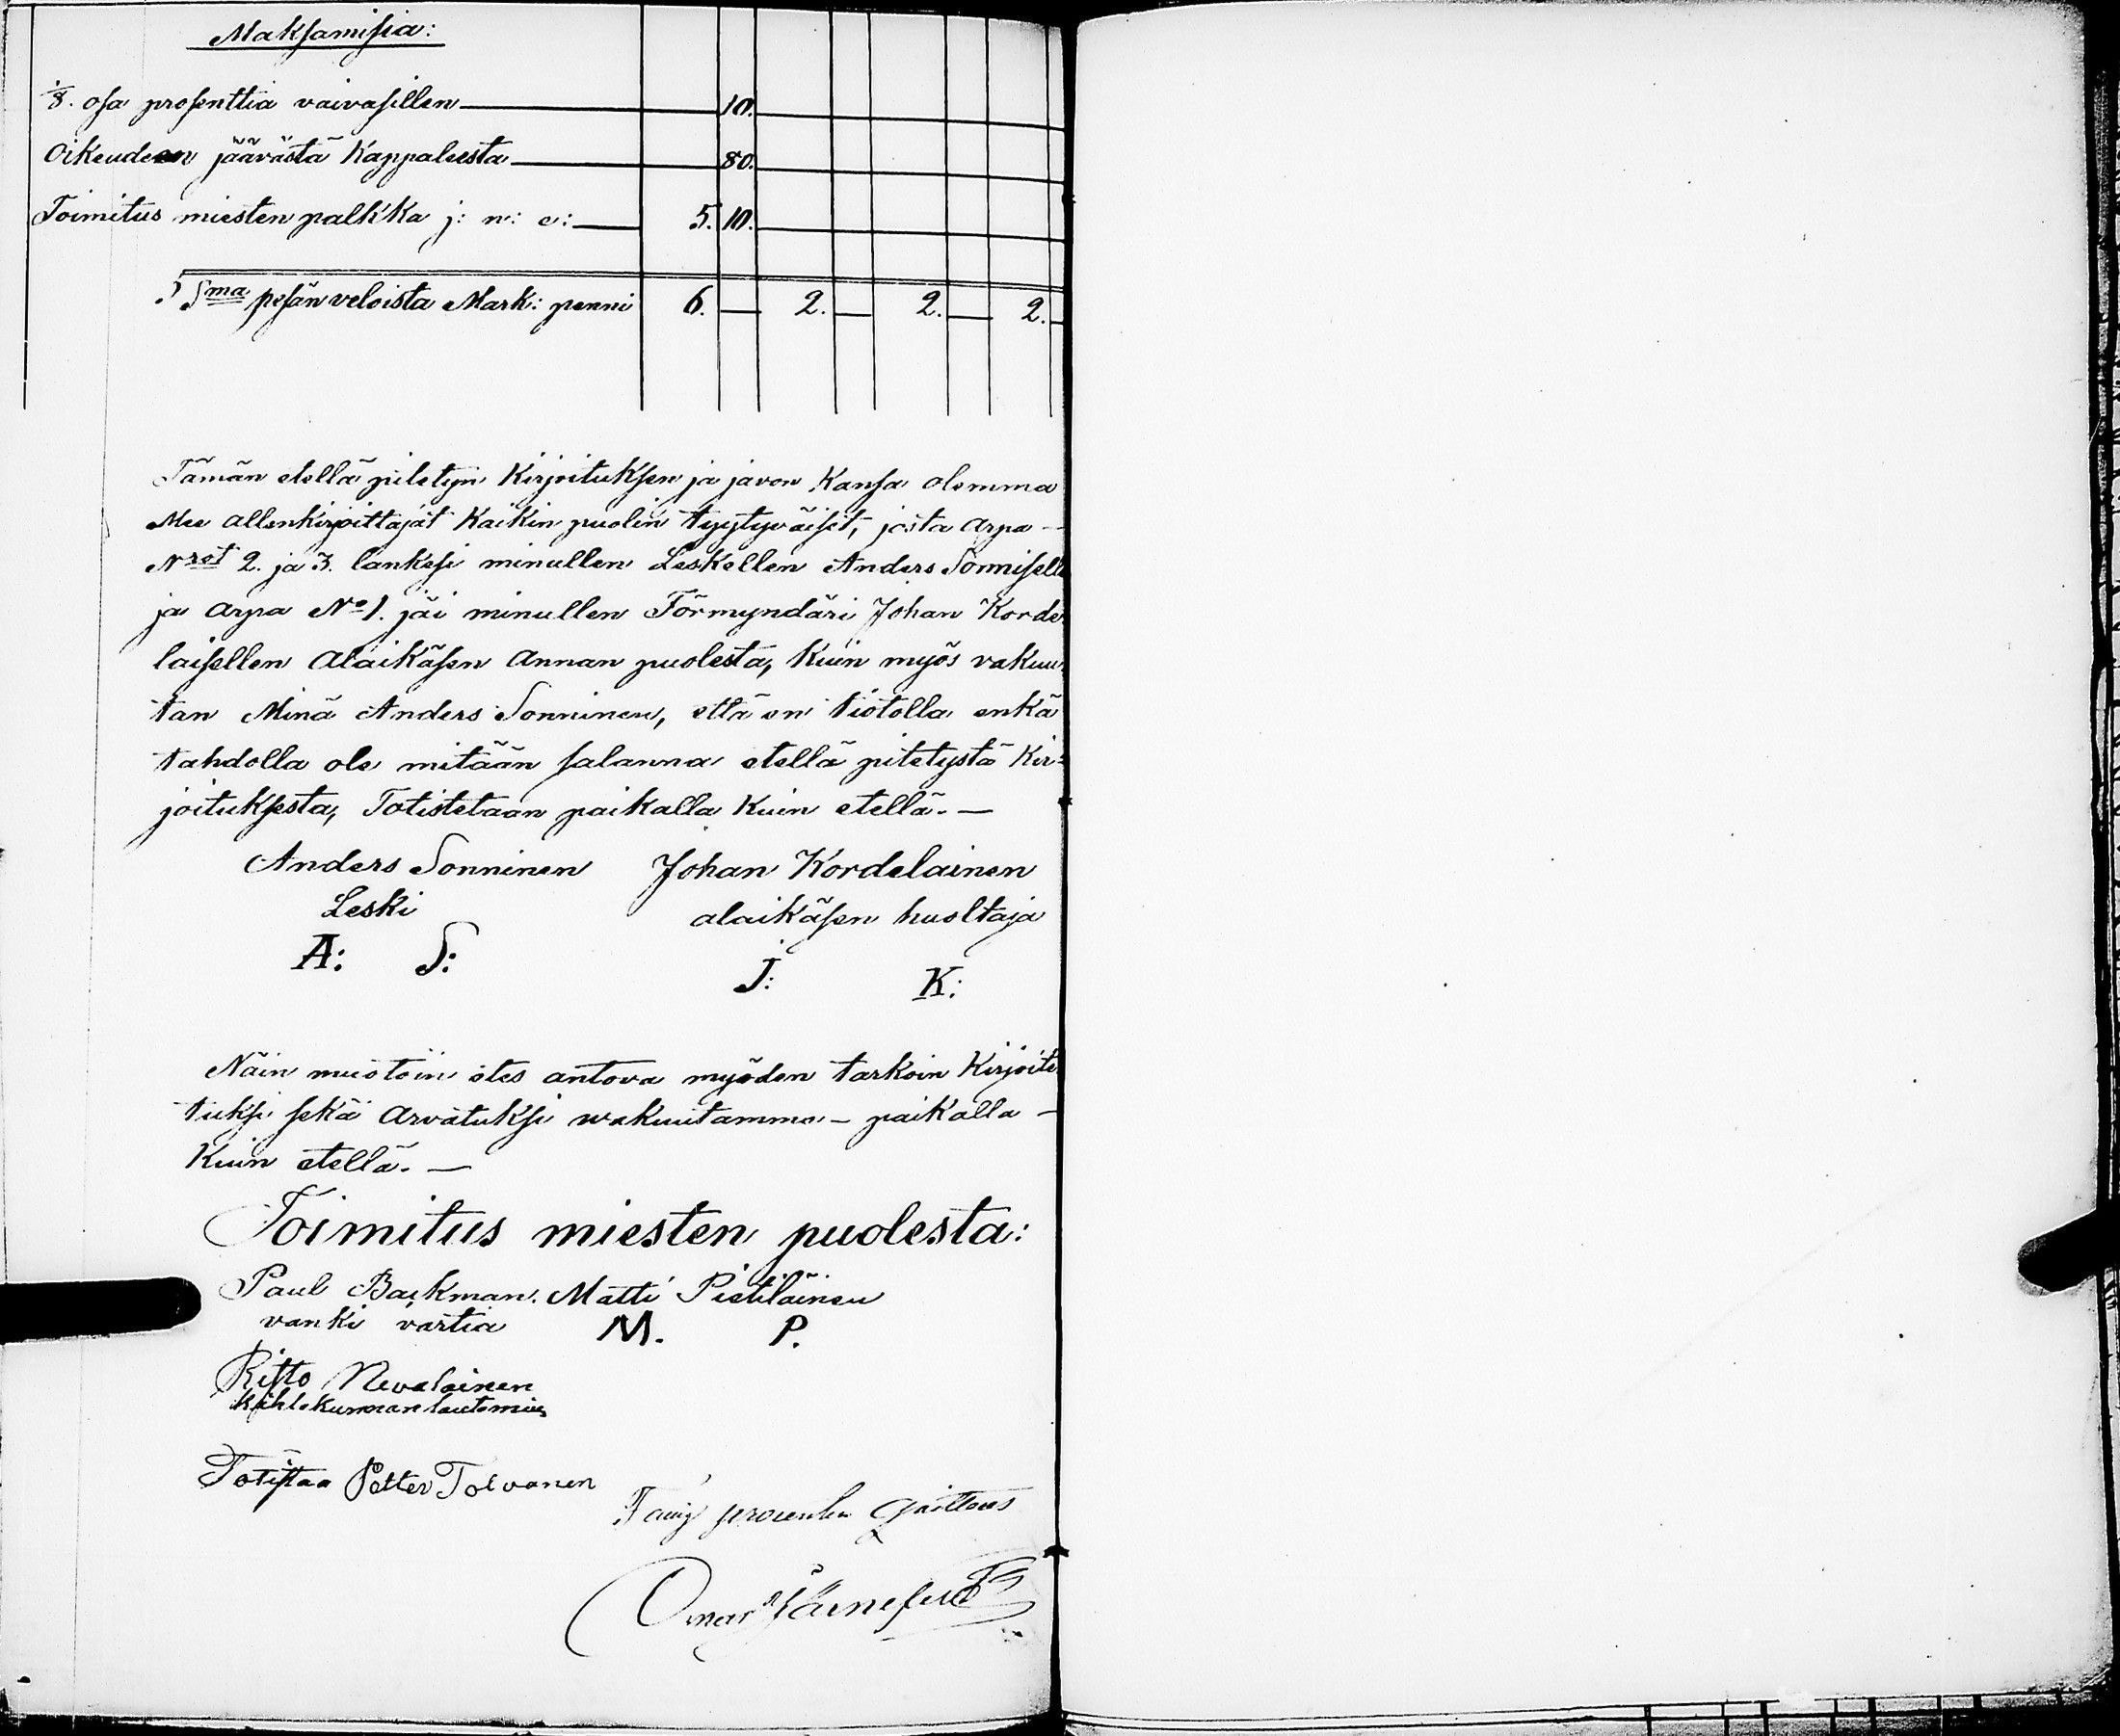 Maksamisia:
1/8. osa prosenttia vaivasillen 10.
Oikeudeen jäävästä Kappaleesta 80.
Toimitus miesten palkka j: n: e: 5. 10.
Sma pesän veloista Mark: penni 6. — 2. — 2. — 2. —
Tämän etellä piletyn Kirjoituksen ja javon Kansa olemma
Mee allenkirjoittajat Kaikin puolin tyytyväiset, josta arpa —
Nrot 2. ja 3. lankesi minullen Leskellen Anders Sonnisell
ja arpa No 1. jäi minullen Förmyndäri Johan Korde
laisellen alaikäsen annan puolesta, Kuin myös vakuu
tan Minä Anders Sonninen, että en tiötolla enkä
tahdolla ole mitään salanna etellä pitetystä Kir=
joituksesta, Totistetaan paikalla Kuin etellä. —
Anders Sonninen Johan Kordelainen
Leski alaikäsen huoltaja
A: S: J: K:
Näin muotoin otes antova myöden tarkoin Kirjoite
tuksi sekä arvatuksi wakuutamme — paikalla —
Kuin etellä. —
Toimitus miesten puolesta:
Paul Backman. Matti Pietiläinen
vanki vartia M. P.
Risto Nevalainen
Kihlekunnan lautamies
Totistaa Petter Tolvanen